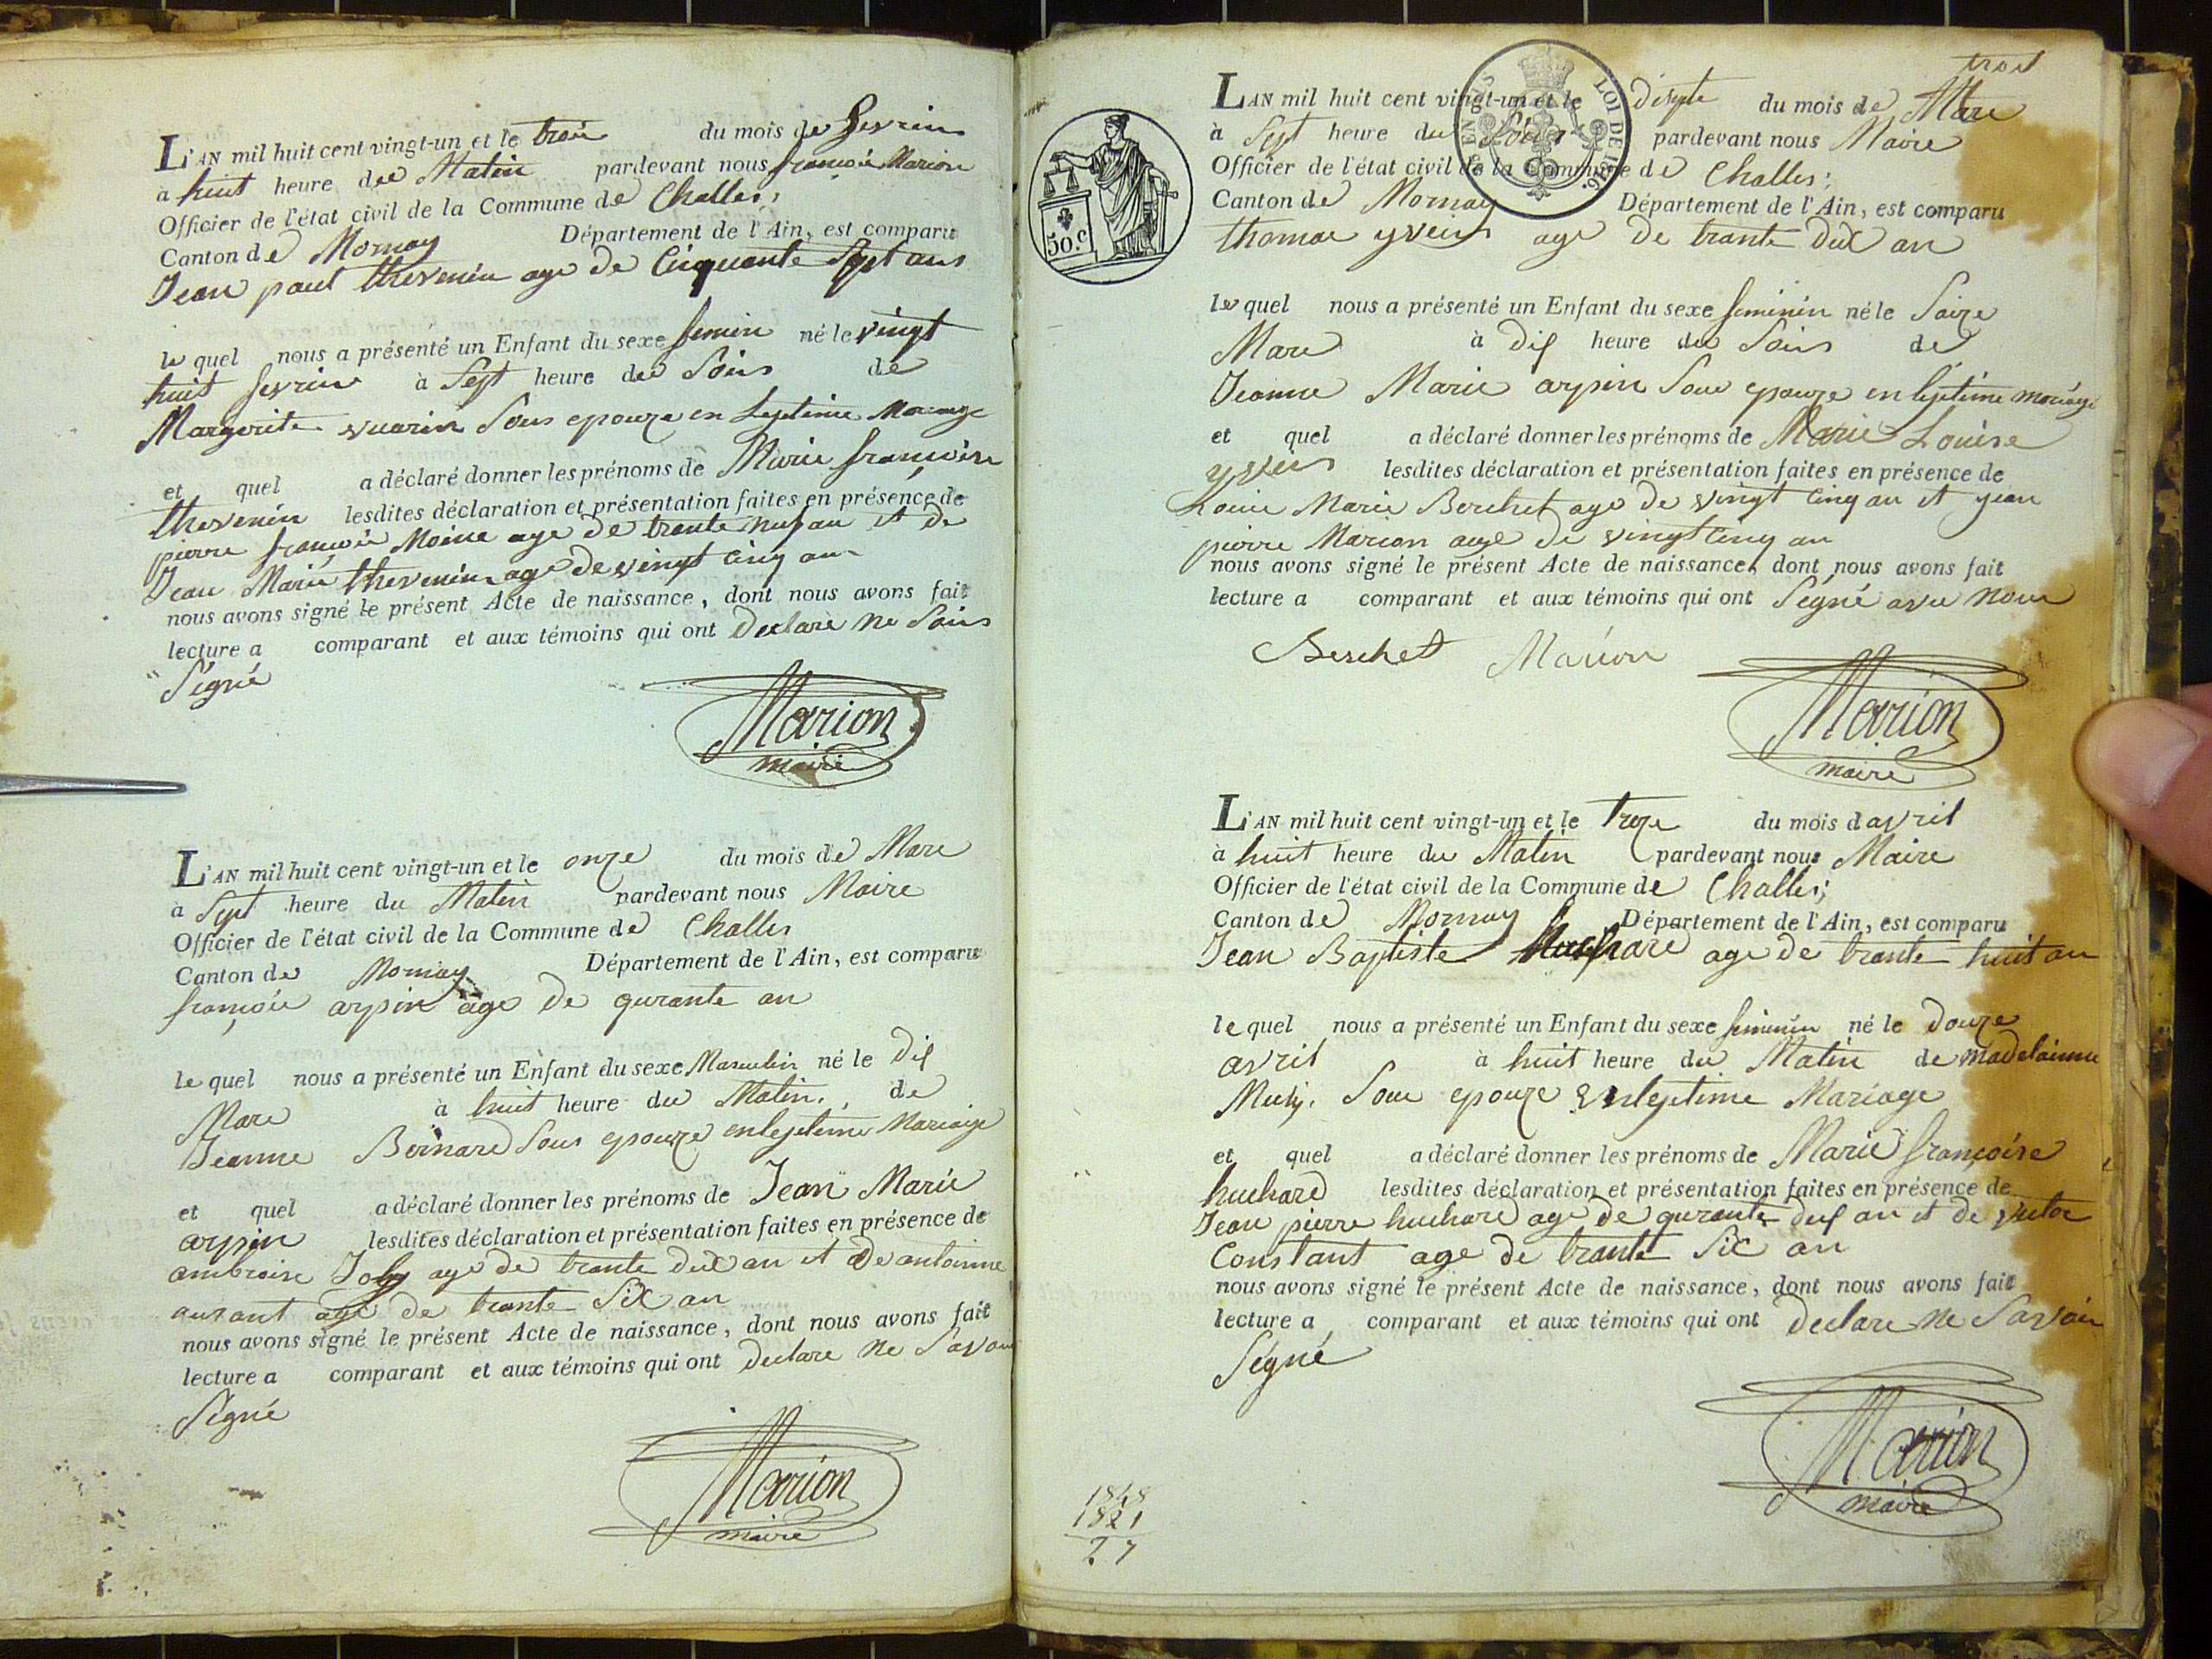 L'AN mil huit cent vingt-un et le trois du mois de fevrier
à huit heure du Matin pardevant nous françois Marion
Officier de l'état civil de la Commune de Challes;
Canton de Mornay Département de l'Ain, est comparu
Jean paul thevenin age de Cinquante Sept ans
le quel nous a présenté un Enfant du sexe femin né le vingt
huit fevrier à Sept heure du Soir de
Margerite vuarin Sous epouze en Legetime Mariage
et quel a déclaré donner les prénoms de Marie françoise
thevenin lesdites déclaration et présentation faites en présence de
pierre françois Moine age de trante nuf an et de
Jean Marie thevenin age de vingt cinq an
nous avons signé le présent Acte de naissance, dont nous avons fait
lecture a comparant et aux témoins qui ont Declaré ne Savoir
Signé
Marion
maire
L'AN mil huit cent vingt-un et le onze du mois de Mare
à Sept heure du Matin pardevant nous Maire
Officier de l'état civil de la Commune de Challes
Canton de Mornay Département de l'Ain, est comparu
françois arpin age de qurante an
le quel nous a présenté un Enfant du sexe Masculin né le Dix
Mare à huit heure du Matin, de
Jeanne Bernard Sous epouze en legetime Mariage
et quel a déclaré donner les prénoms de Jean Marie
arpin lesdites déclaration et présentation faites en présence de
ambroise Joly age de trante deux an et de antoinne
age de trante Six an
nous avons signé le présent Acte de naissance, dont nous avons fait
lecture a comparant et aux témoins qui ont declare ne Savoir
Signé
Marion
maire
trois
L'AN mil huit cent vingt-un et le disepte du mois de Mare
à Sept heure du Soir pardevant nous Maire
Officier de l'état civil de la Commune de Challes;
Canton de Mornay Département de l'Ain, est comparu
thomas age de trante deux an
LOI DE 1816.
50.c
le quel nous a présenté un Enfant du sexe feminin né le Saize
Mare à Dix heure du Soir de
Jeanne Marie arpin Sous epouze en legetime mariage
et quel a déclaré donner les prénoms de Marie Louise
lesdites déclaration et présentation faites en présence de
Louis Marie Berchet age de vingt cinq an et jean
pierre Marion age de vingt cinq an
nous avons signé le présent Acte de naissance, dont nous avons fait
lecture a comparant et aux témoins qui ont Segné avec nous
Berchet Marion
Marion
maire
L'AN mil huit cent vingt-un et le treze du mois d avril
à huit heure du Matin pardevant nous Maire
Officier de l'état civil de la Commune de Challes;
Canton de Mornay Département de l'Ain, est comparu
Jean Baptiste huchard age de trante huit an
le quel nous a présenté un Enfant du sexe feminin né le douze
avril à huit heure du Matin de Madelainne
Sous epouze en legetime Mariage
et quel a déclaré donner les prénoms de Marie françoise
huchard lesdites déclaration et présentation faites en présence de
Jean pierre huchard age de qurante deux an et de
Constant age de trante Six an
nous avons signé le présent Acte de naissance, dont nous avons fait
lecture a comparant et aux témoins qui ont declare ne Savoir
Segné
Marion
maire
1848
1821
27